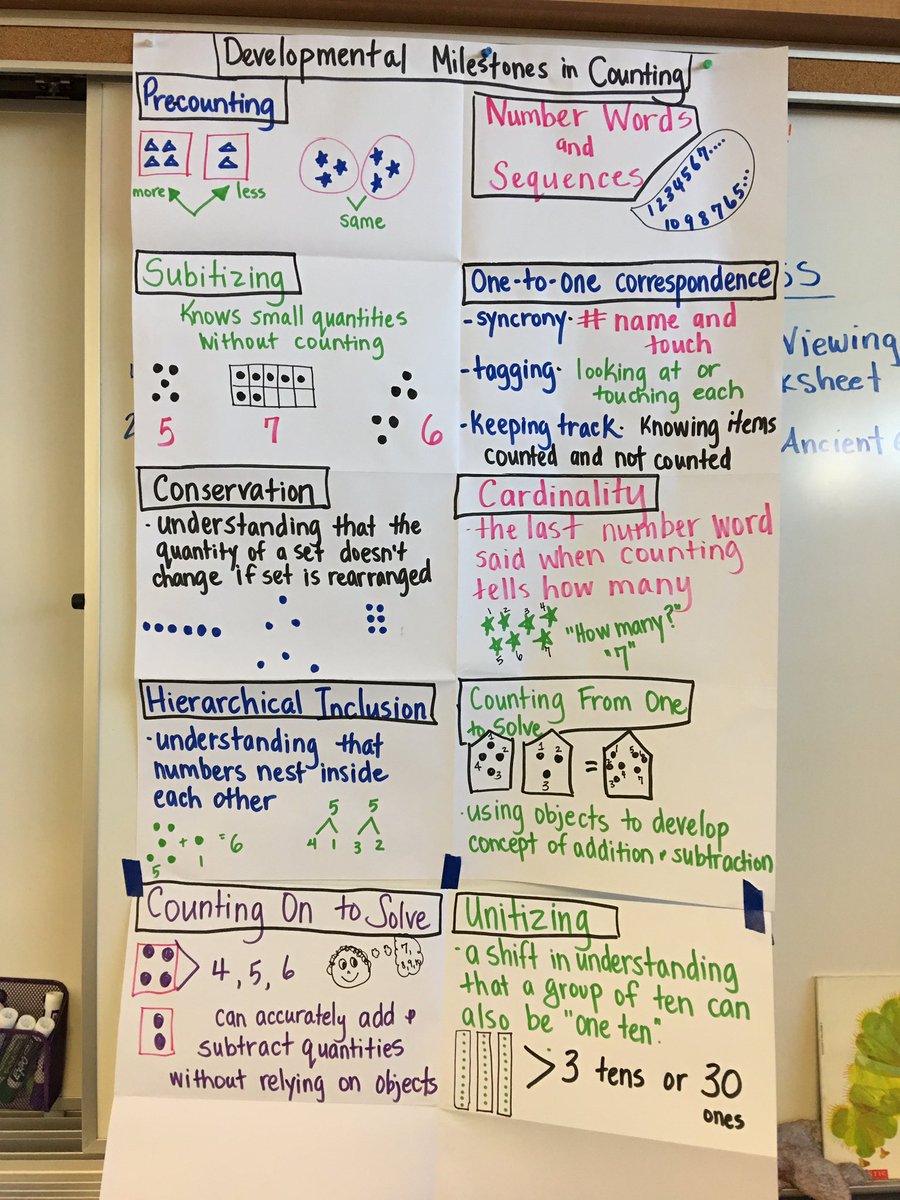 Developmental Milestones in Counting
Precounting
more
less
same
Number Words
and
Sequences
1 2 3 4 5 6 7....
10 9 8 7 6 5...
Subitizing
Knows small quantities
without counting
5
7
6
One-to-one correspondence
-syncrony· # name and
touch
-tagging· looking at or
touching each
-Keeping track· Knowing items
counted and not counted
Conservation
·understanding that the
quantity of a set doesn't
change if set is rearranged
Cardinality
·the last number word
said when counting
tells how many
1 2 3 4
5 6 7
"How many?"
"7"
Hierarchical Inclusion
·understanding that
numbers nest inside
each other
+ = 6
5 1
5 5
4 1 3 2
Counting From One
to Solve
1 2 3 4
1 2 3
=
1 2 3 4 5 6 7
·using objects to develop
concept of addition + subtraction
Counting On to Solve
4, 5, 6
7,
8,9,10
can accurately add +
subtract quantities
without relying on objects
Unitizing
·a shift in understanding
that a group of ten can
also be "one ten".
> 3 tens or 30
ones
ss
Viewing
ksheet
Ancient
Expo